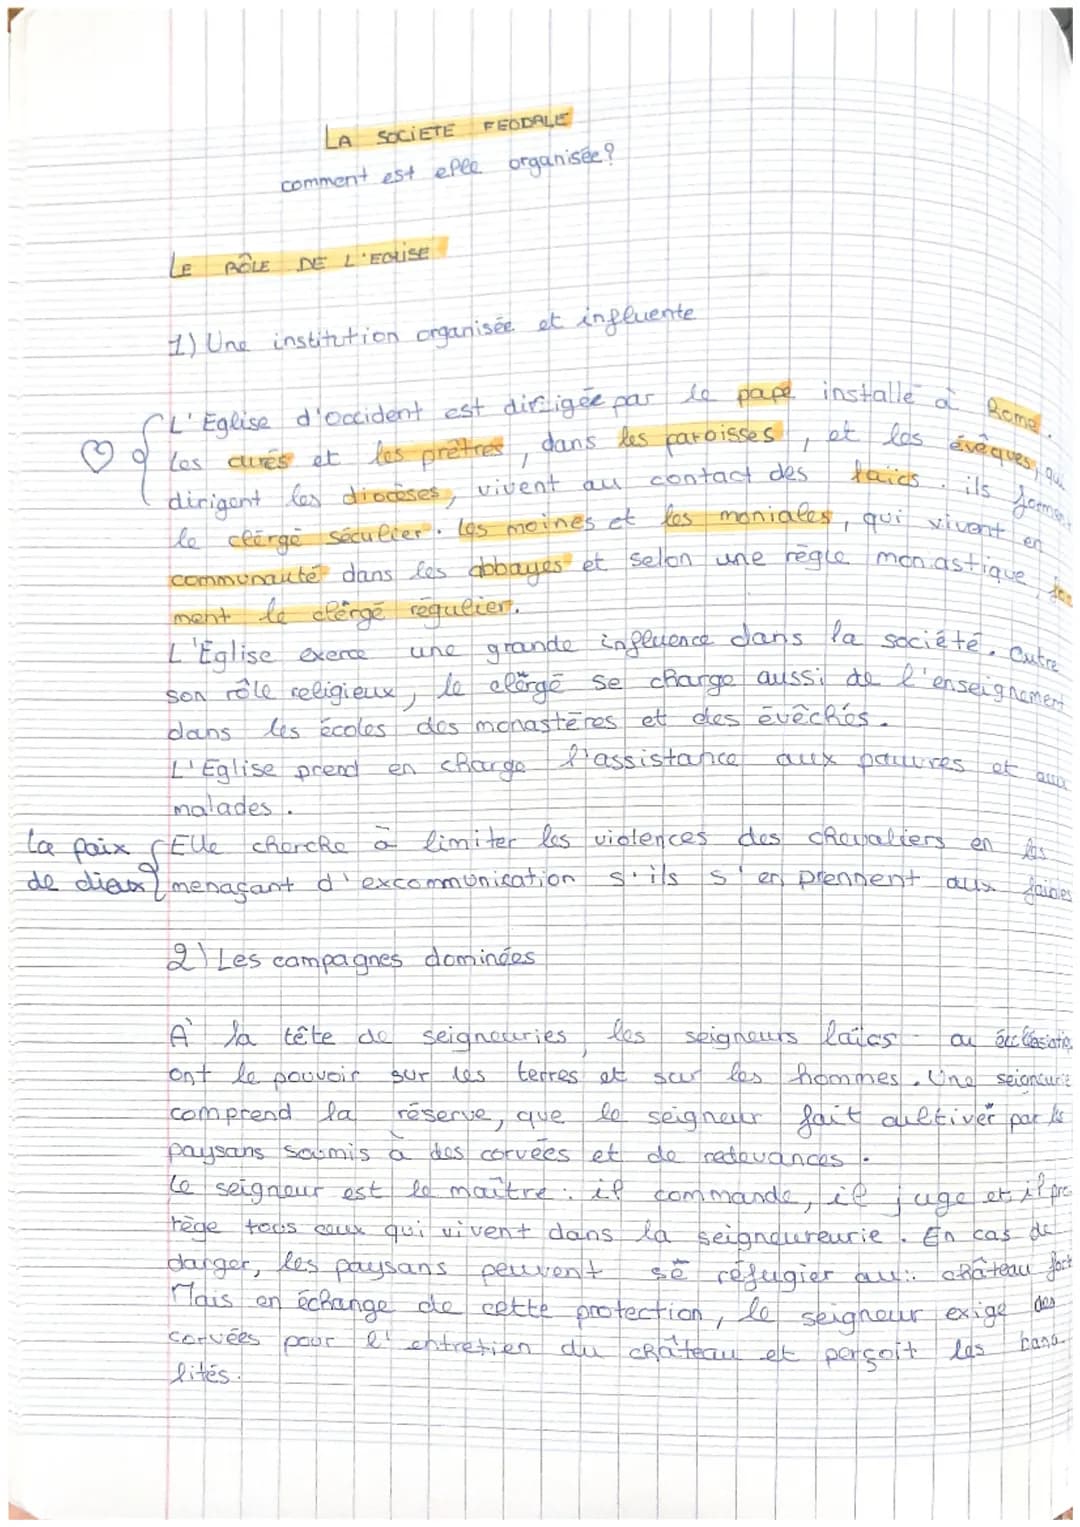 LA SOCIETE FEODALE
comment est elle organisée?
LE RÔLE DE L'EGLISE
1) Une institution organisée et influente
L'Église d'Occident est dirigée par le pape installé à Rome.
les curés et les prêtres, dans les paroisses, et les évêques, qui
dirigent les diocèses, vivent au contact des laïcs. ils forment
le clergé séculier. Les moines et les moniales, qui vivent en
communauté dans les abbayes et selon une règle monastique, for
ment le clergé régulier.
L'Église exerce une grande influence dans la société. Outre
son rôle religieux, le clergé se charge aussi de l'enseignement
dans les écoles des monastères et des évêchés.
L'Église prend en charge l'assistance aux pauvres et aux
malades.
La paix { Elle cherche à limiter les violences des chevaliers en les
de dieux { menaçant d'excommunication s'ils s'en prennent aux faibles
2) Les campagnes dominées
À la tête de seigneuries, les seigneurs laïcs ou écclésiatiq
ont le pouvoir sur les terres et sur les hommes. Une seigneurie
comprend la réserve, que le seigneur fait cultiver par les
paysans soumis à des corvées et de redevances.
Le seigneur est le maître : il commande, il juge et il pro
tège tous ceux qui vivent dans la seigndureurie. En cas de
danger, les paysans peuvent se réfugier au château fort
Mais en échange de cette protection, le seigneur exige des
corvées pour l'entretien du château et perçoit les bana
lités.